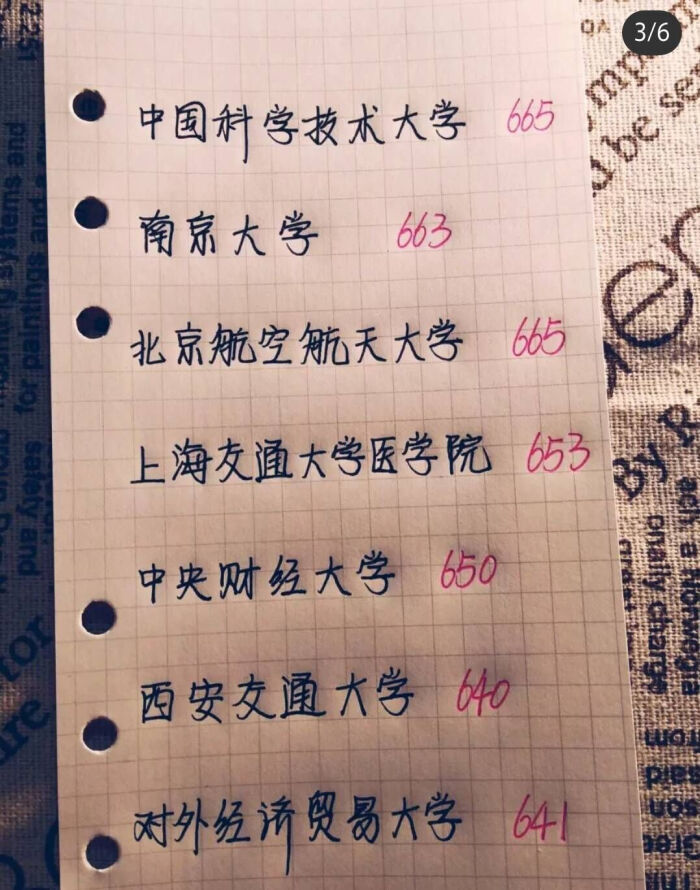 3/6
中国科学技术大学 665
南京大学 663
北京航空航天大学 665
上海交通大学医学院 653
中央财经大学 650
西安交通大学 640
对外经济贸易大学 641
be se
By R.
for paintings and
onally charge
from
said